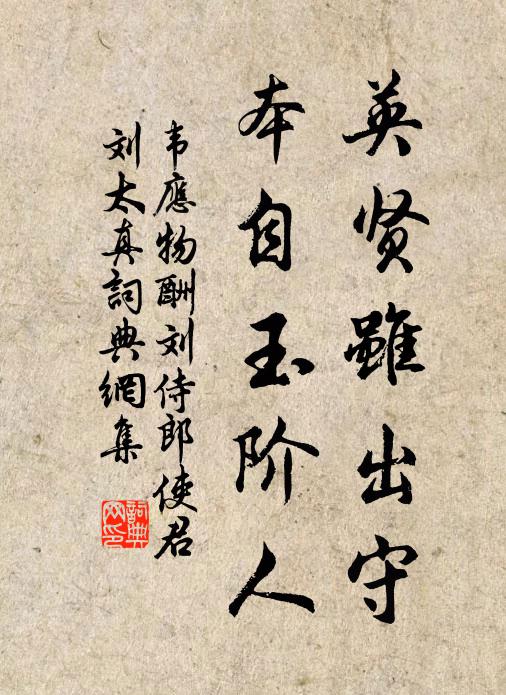 英贤雖出守
本自玉阶人
韦應物酬刘侍郎使君
刘太真詞典網集
詞典
网印